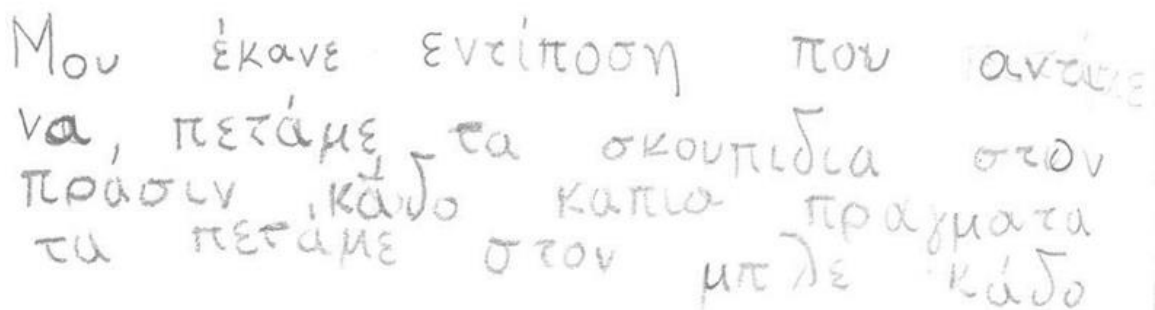 Μου έκανε εντίποση που αντί
να, πετάμε τα σκουπιδια στον
πράσιν κάδο καπια πραγματα
τα πετάμε στον μπλε κάδο